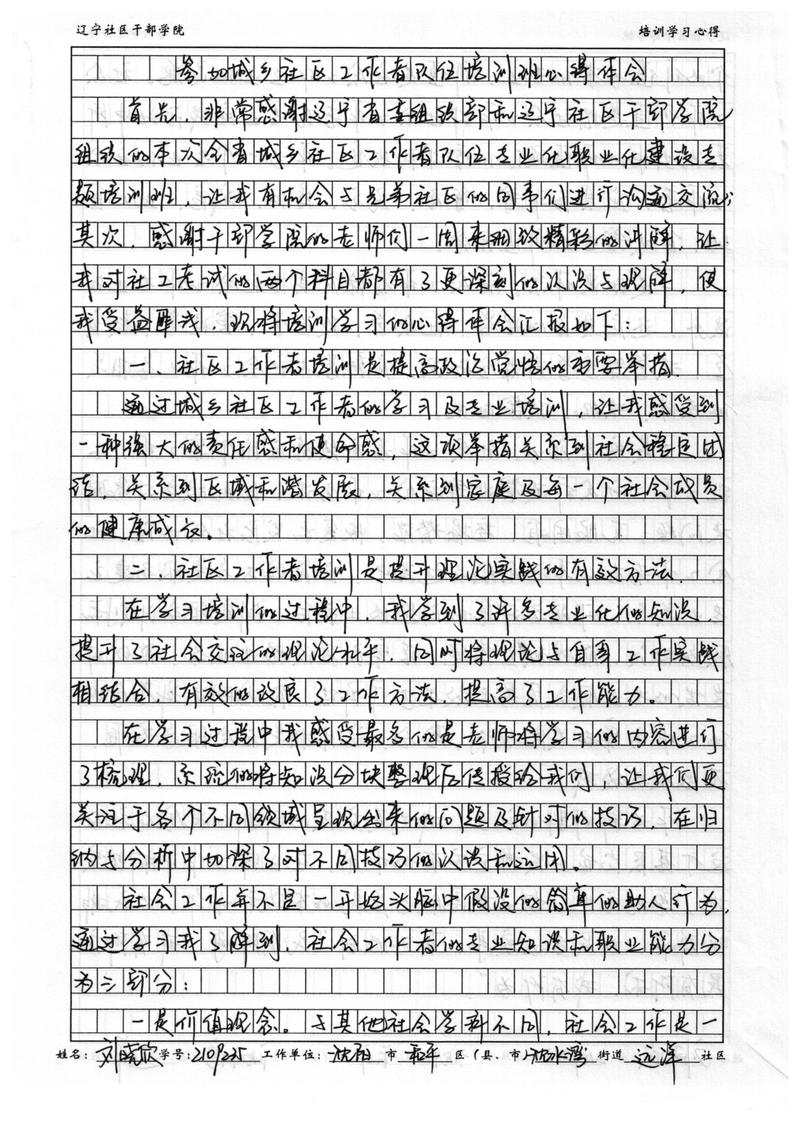 辽宁社区干部学院 培训学习心得
参加城乡社区工作者队伍培训班心得体会
首先,非常感谢辽宁省委组织部和辽宁社区干部学院
组织的本次全省城乡社区工作者队伍专业化职业化建设专
题培训班,让我有机会与兄弟社区的同事们进行沟通交流;
其次,感谢干部学院的老师们一周来细致精彩的讲解,让
我对社工考试的两个科目都有了更深刻的认识与理解,使
我受益匪浅,现将培训学习的心得体会汇报如下:
一、社区工作者培训是提高政治觉悟的重要举措。
通过城乡社区工作者的学习及专业培训,让我感受到
一种强大的责任感和使命感,这项举措关系到社会稳定团
结,关系到区域和谐发展,关系到家庭及每一个社会成员
的健康成长。
二、社区工作者培训是提升理论实践的有效方法。
在学习培训的过程中,我学到了许多专业化的知识,
提升了社会交流的理论水平,同时将理论与自身工作实践
相结合,有效的改良了工作方法,提高了工作能力。
在学习过程中我感受最多的是老师将学习的内容进行
了梳理,系统的将知识分块整理后传授给我们,让我们更
关注于各个不同领域呈现出来的问题及针对的技巧,在归
纳与分析中加深了对不同技巧的认识和运用。
社会工作并不是一开始头脑中假设的简单的助人行为,
通过学习我了解到,社会工作者的专业知识和职业能力分
为三部分:
一是价值观念。与其他社会学科不同,社会工作是一
姓名:刘晓欣 学号:210925 工作单位:沈阳 市 和平 区(县、市)沈水湾 街道 远洋 社区